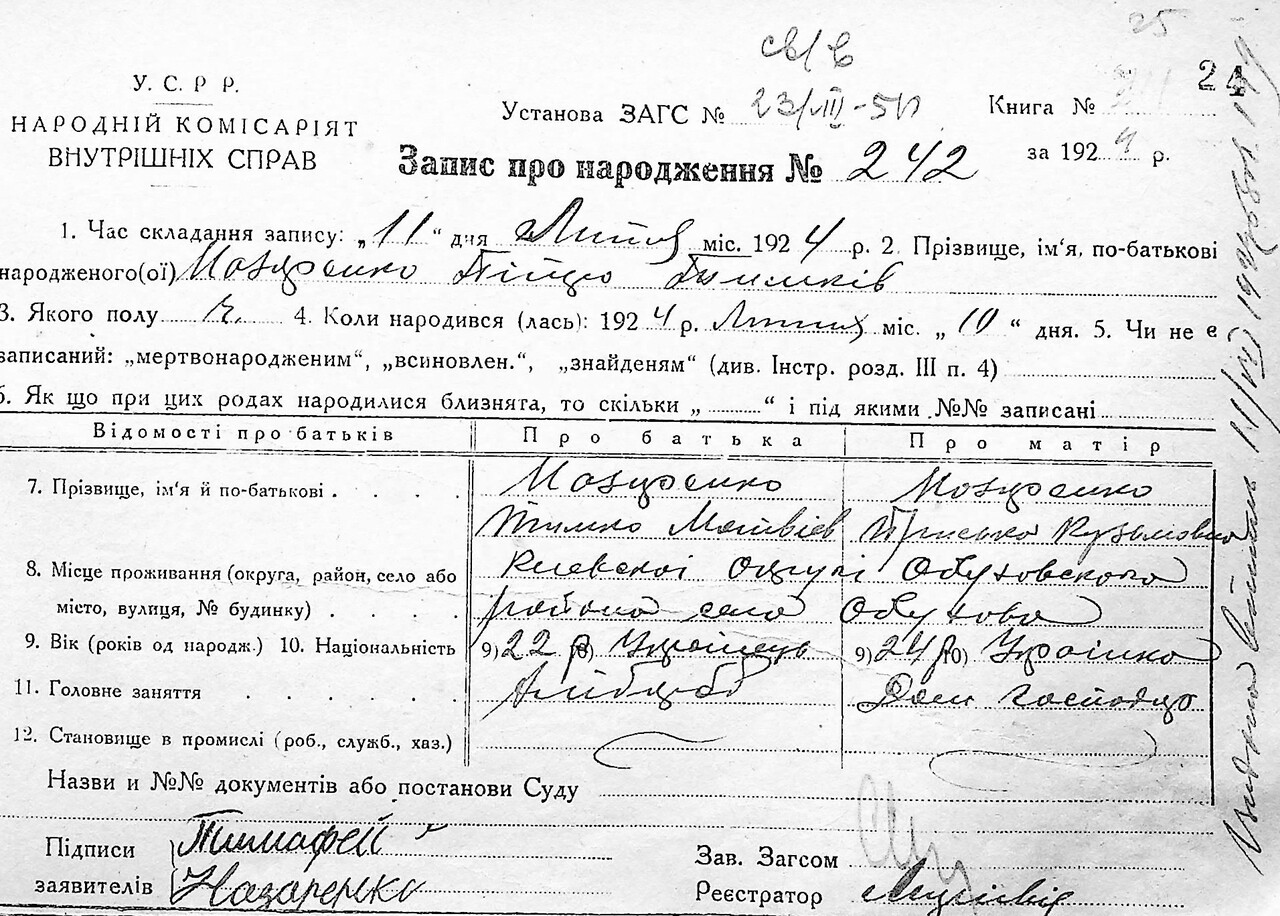 25
св/в
24
У. С. Р Р.
НАРОДНІЙ КОМІСАРІЯТ
ВНУТРІШНІХ СПРАВ
Установа ЗАГС № 23/VIII-51
Книга №
за 1924 р.
Запис про народження № 242
1. Час складання запису: „11“ дня Липня міс. 1924 р. 2. Прізвище, ім'я, по-батькові
народженого(ої)
3. Якого полу ч. 4. Коли народився (лась): 1924 р. Липня міс. „10“ дня. 5. Чи не є
записаний: „мертвонародженим“, „всиновлен.“, „знайденям“ (див. Інстр. розд. III п. 4)
6. Як що при цих родах народилися близнята, то скільки „ “ і під якими №№ записані
Відомості про батьків Про батька Про матір
7. Прізвище, ім'я й по-батькові
Тимко Матвіев Приська Кузьмовна
8. Місце проживання (округа, район, село або Киевскоі Округи Обуховского
місто, вулиця, № будинку) района село Обухово
9. Вік (років од народж.) 10. Національність 9) 22 р Українець 9) 24 р 10) Українка
11. Головне заняття Дом Господар
12. Становище в промислі (роб., служб., хаз.)
Назви и №№ документів або постанови Суду
Підписи Тимафей
заявителів Назаренко
Зав. Загсом
Реєстратор